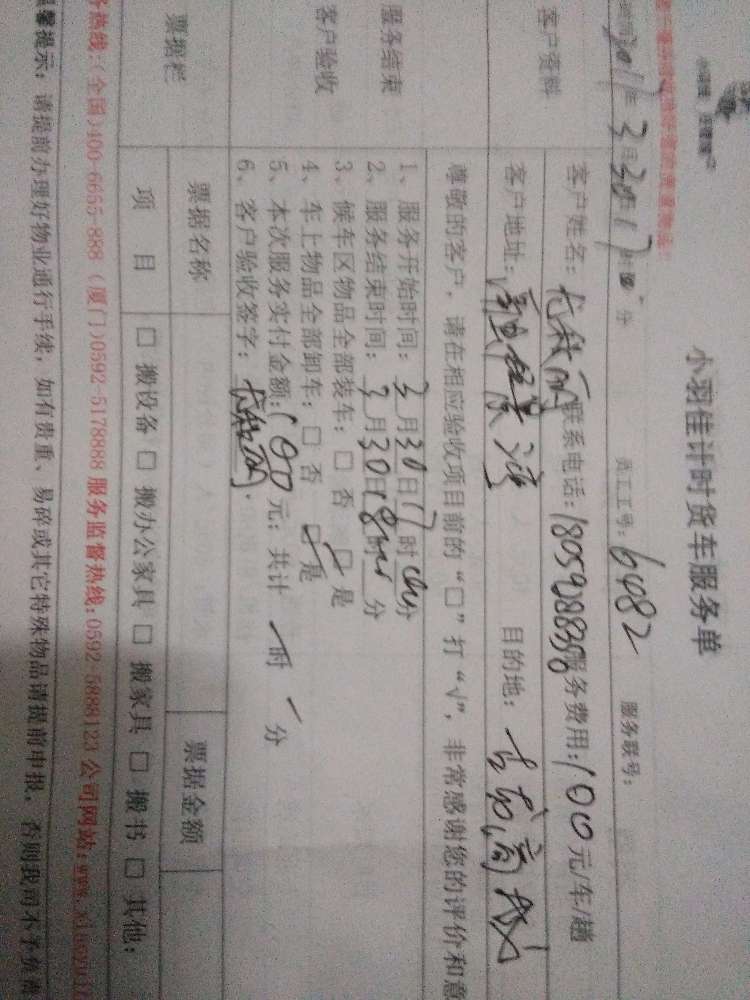 小羽佳计时货车服务单
3月30日17时 分 员工工号：6482 服务联号：
客户资料
客户姓名： 联系电话：18059288308 服务费用：100元/车/趟
客户地址： 目的地：
尊敬的客户，请在相应验收项目前的“□”打“√”，非常感谢您的评价和意
服务结束
客户验收
1、服务开始时间：3月30日17时 分
2、服务结束时间：3月30日18时 分
3、候车区物品全部装车：□ 否 □ 是
4、车上物品全部卸车：□ 否 □ 是
5、本次服务实付金额：100元；共计 一 时 分
6、客户验收签字：
票据栏
票据名称 票据金额
项 目 □ 搬设备 □ 搬办公家具 □ 搬家具 □ 搬书 □ 其他：
务热线：(全国)400-6655-888 (厦门)0592-5178888 服务监督热线：0592-5888123 公司网站：www.xiaoyuji
馨提示：请提前办理好物业通行手续，如有贵重、易碎或其它特殊物品请提前申报，否则我司不予负责